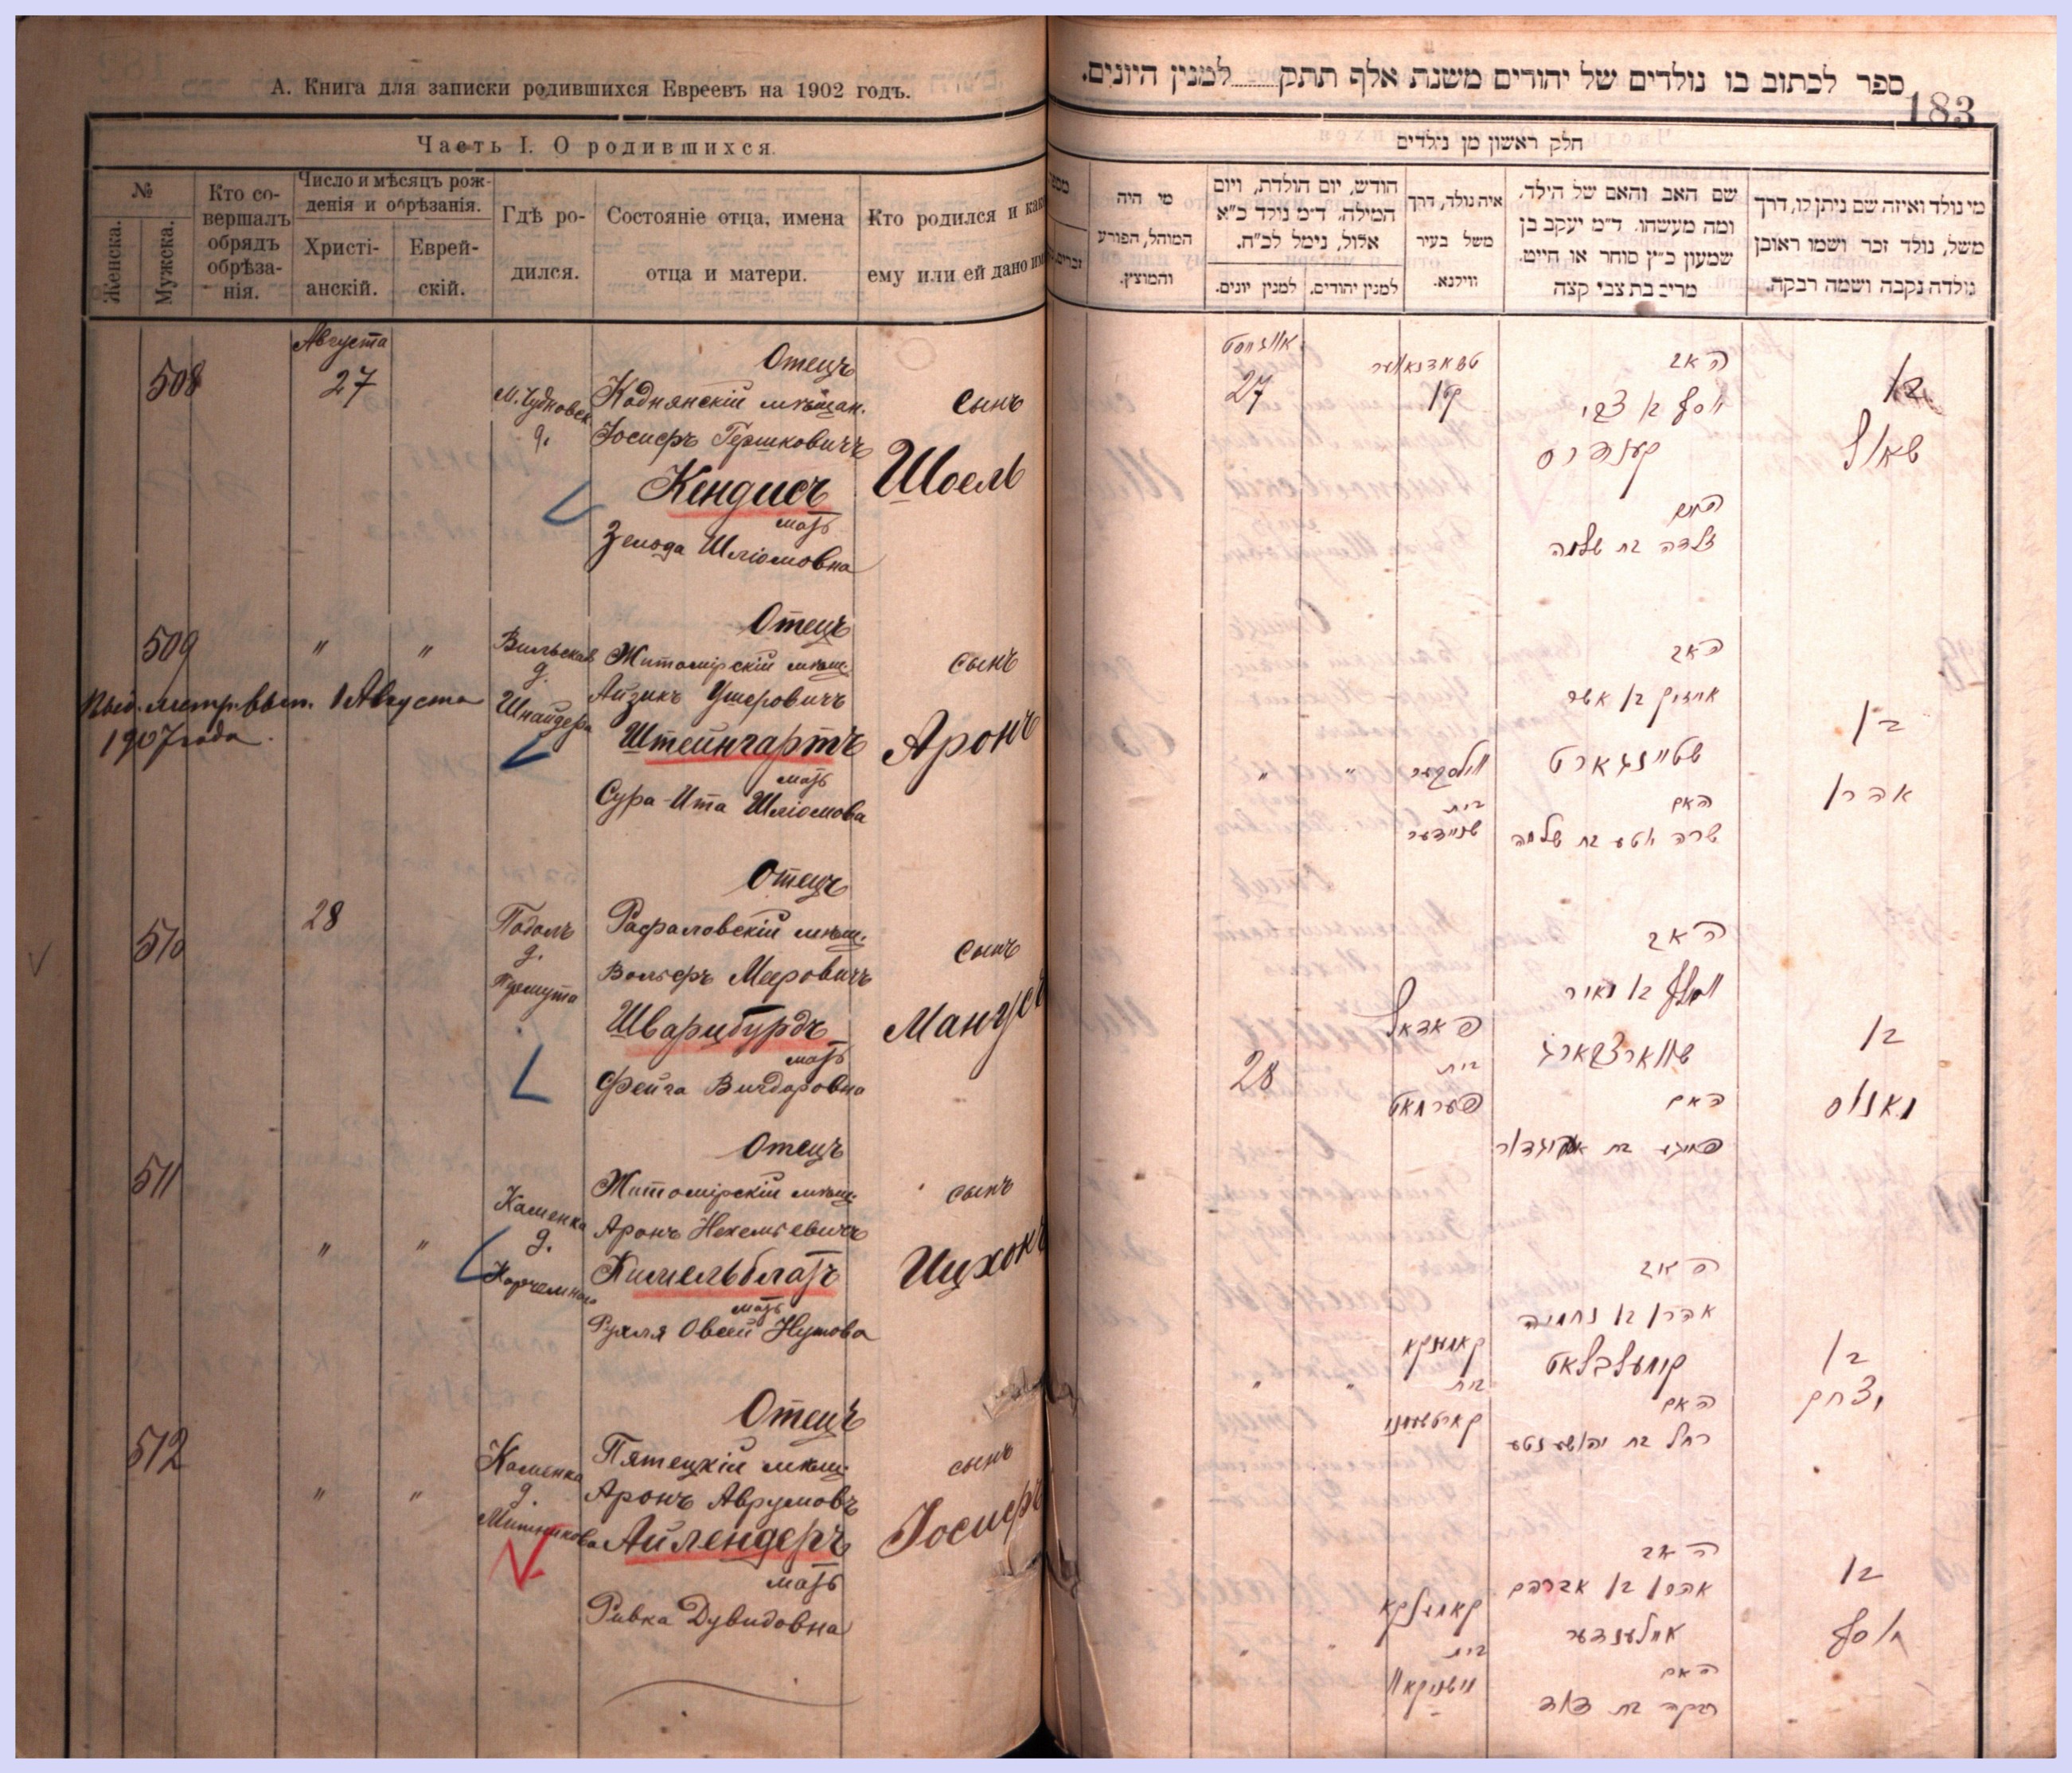 А. Книга для записки родившихся Евреевъ на 1902 годъ.
Часть I. О родившихся.
№
Женска.
Мужска.
Кто совершалъ обрядъ обрѣзанія.
Число и мѣсяцъ рожденія и обрѣзанія.
Христіанскій.
Еврейскій.
Гдѣ родился.
Состояніе отца, имена отца и матери.
Кто родился и как
ему или ей дано им
508
Августа
27
М. Чудновск
д.
Отецъ
Коднянскій мѣщан.
Іосифъ Гершковичъ
Кендисъ
мать
Зелода Шліомовна
сынъ
Шоель
509
"
"
Выд. метр. вып. 1 Августа
1907 года.
Вильская
д.
Шнайдера
Отецъ
Житомірскій мѣщ.
Айзикъ Ушеровичъ
Штейнгартъ
мать
Сура-Ита Шліомова
сынъ
Аронъ
510
28
Подолъ
д.
Отецъ
Рафаловскій мѣщ.
Вольфъ Меровичъ
Шварцбурдъ
мать
Фейга Вигдоровна
сынъ
511
"
"
Каменка
д.
Корчемнаго
Отецъ
Житомірскій мѣщ.
Аронъ Нехемьевичъ
Кимельблатъ
мать
Рухля Овсей Нутова
сынъ
Ицхокъ
512
"
"
Каменка
д.
Митникова
Отецъ
Пятецкій мѣщ.
Аронъ Аврумовъ
Айлендеръ
мать
Ривка Дувидовна
сынъ
Іосифъ
ספר לכתוב בו נולדים של יהודים משנת אלף תתק......למנין היונים.
183
חלק ראשון מן נולדים
מי היה
המוהל, הפורע
והמוצץ.
חודש, יום הולדת, ויום
המילה. ד״מ נולד כ״א
אלול, נימל לכ״ח.
למנין יונים.
למנין יהודים.
איה נולד, דרך
משל בעיר
ווילנא.
שם האב והאם של הילד,
ומה מעשהו. ד״מ יעקב בן
שמעון כ״ץ סוחר או חייט.
מרים בת צבי קצה
מי נולד ואיזה שם ניתן לו, דרך
משל, נולד זכר ושמו ראובן
נולדה נקבה ושמה רבקה.
אווגוסט
27
האב
יוסף בן צבי
קענדיס
האם
זלדה בת שלמה
בן
שאול
"
"
ווילסקער
בית
שניידער
האב
אייזיק בן אשר
שטיינגארט
האם
שרה יטע בת שלמה
בן
אהרן
28
פאדאל
בית
פערמאט
האב
וואלף בן מאיר
שווארצבארג
האם
פייגע בת אביגדור
בן
מאניס
"
"
קאמענקא
בית
קארטשעמני
האב
אהרן בן נחמיה
קימעלבלאט
האם
רחל בת יהושע נטע
בן
יצחק
"
"
קאמענקא
בית
מיטניקאוו
האב
אהרן בן אברהם
איילענדער
האם
רבקה בת דוד
בן
יוסף